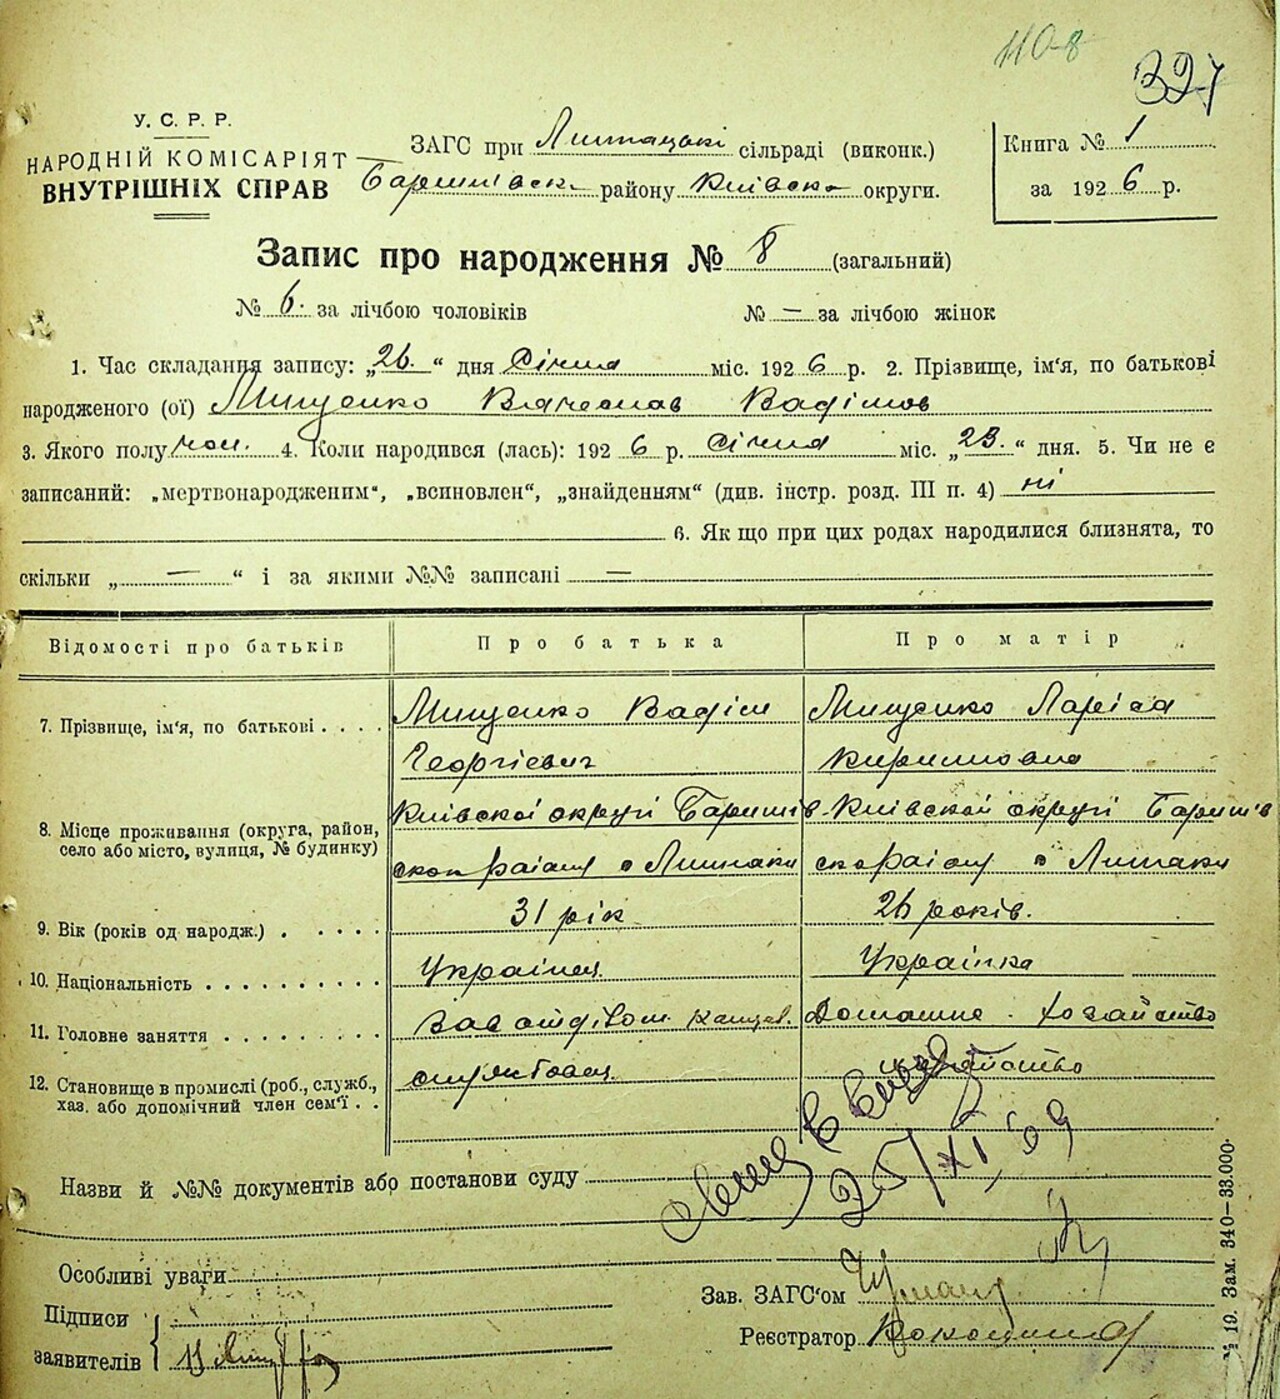 110-8
327
У. С. Р. Р.
НАРОДНІЙ КОМІСАРІЯТ
ВНУТРІШНІХ СПРАВ
ЗАГС при сільраді (виконк.)
району Київськ округи.
Книга № 1
за 1926 р.
Запис про народження № 8 (загальний)
№ 6. за лічбою чоловіків № — за лічбою жінок
1. Час складання запису: „26.“ дня Січня міс. 1926 р. 2. Прізвище, ім'я, по батькові
народженого (ої) Мищенко Вячеслав Вадімов
3. Якого полу чол. 4. Коли народився (лась): 1926 р. Січня міс. „23.“ дня. 5. Чи не є
записаний: „мертвонародженим“, „всиновлен“, „знайденням“ (див. інстр. розд. III п. 4) ні
6. Як що при цих родах народилися близнята, то
скільки „ — “ і за якими №№ записані —
Відомості про батьків Про батька Про матір
7. Прізвище, ім'я, по батькові . . . . Мищенко Вадім Мищенко Ларіса
Георгіевич Кириловна
8. Місце проживання (округа, район, село або місто, вулиця, № будинку) Київскої округі Баришів Київскої округі Баришів
ског раіону с Лишаки раіону с Лишаки
9. Вік (років од народж.) . . . . . 31 рік 26 років.
10. Національність . . . . . . . . . . Українец. Українка
11. Головне заняття . . . . . . . . . Зав Домашнє хозайство
12. Становище в промислі (роб., служб., хаз. або допомічний член сем'ї . . службовец.
Назви й №№ документів або постанови суду
25/XI
Особливі уваги
Підписи
заявителів
Зав. ЗАГС'ом
Реєстратор
№ 19. Зам. 340—33.000.